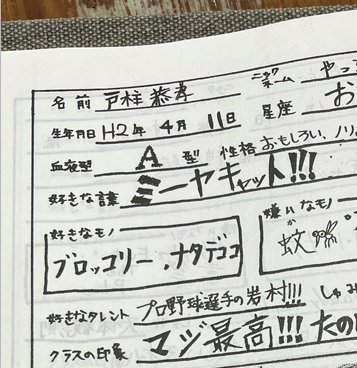 名前 戸柱 恭孝 ニックネーム やっ
生年月日 H2年 4月 11日 星座 お
血液型 A型 性格 おもしろい、ノリ
好きな言葉 ミーヤキャット!!!
好きなモノ 嫌いなモノ
ブロッコリー、ナタデココ 蚊
か
好きなタレント プロ野球選手の岩村!!! しゅみ
クラスの印象 マジ最高!!! たの